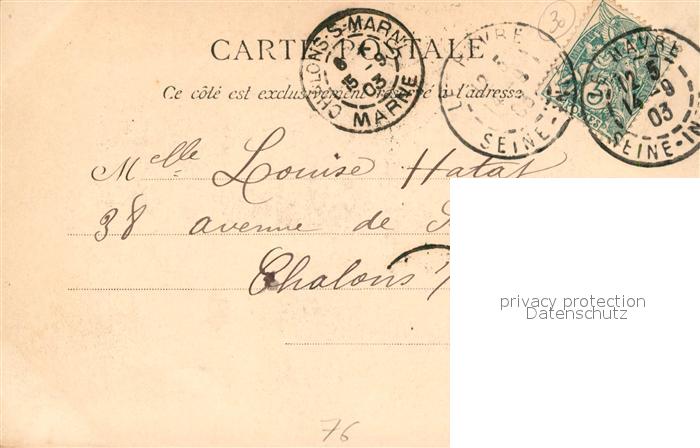 30
CARTE POSTALE
Ce côté est exclusivement réservé à l'adresse
CHALONS-S-MARNE
15-9
03
MARNE
LE HAVRE
SEINE-
LE HAVRE
12 5
14-9
03
SEINE-IN
Melle Louise Hatat
38 avenue de
Chalons
privacy protection
Datenschutz
76